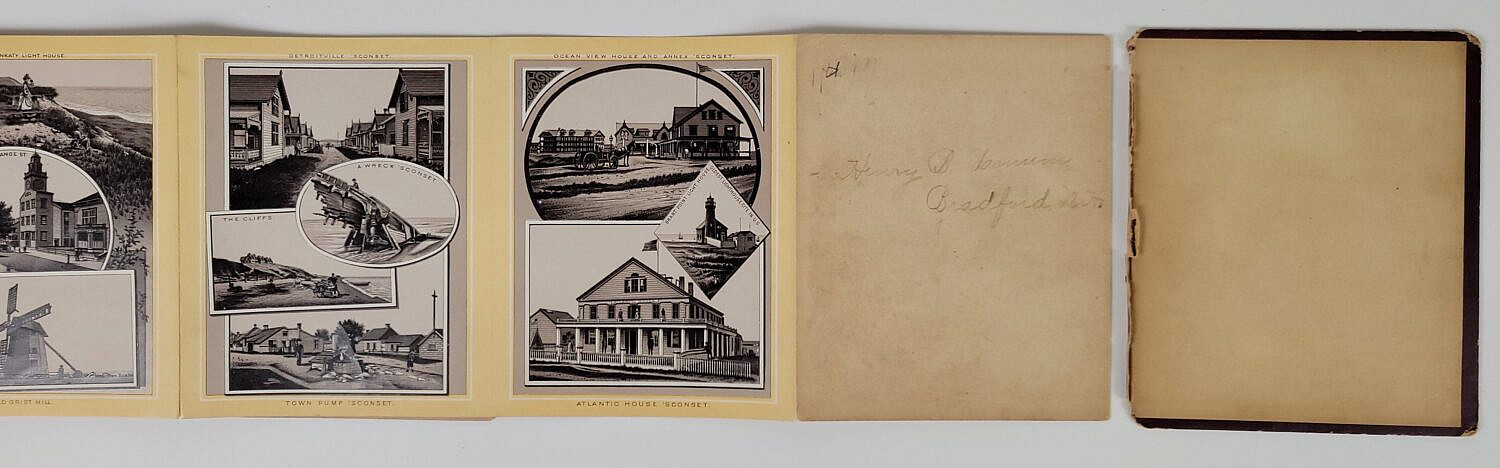 NKATY LIGHT HOUSE.
ANGE ST.
LD GRIST MILL.
DETROITVILLE 'SCONSET.
A WRECK 'SCONSET
THE CLIFFS
TOWN PUMP 'SCONSET.
OCEAN VIEW HOUSE AND ANNEX 'SCONSET.
BRANT POINT LIGHT HOUSE
ATLANTIC HOUSE 'SCONSET.
Henry B
Bradford